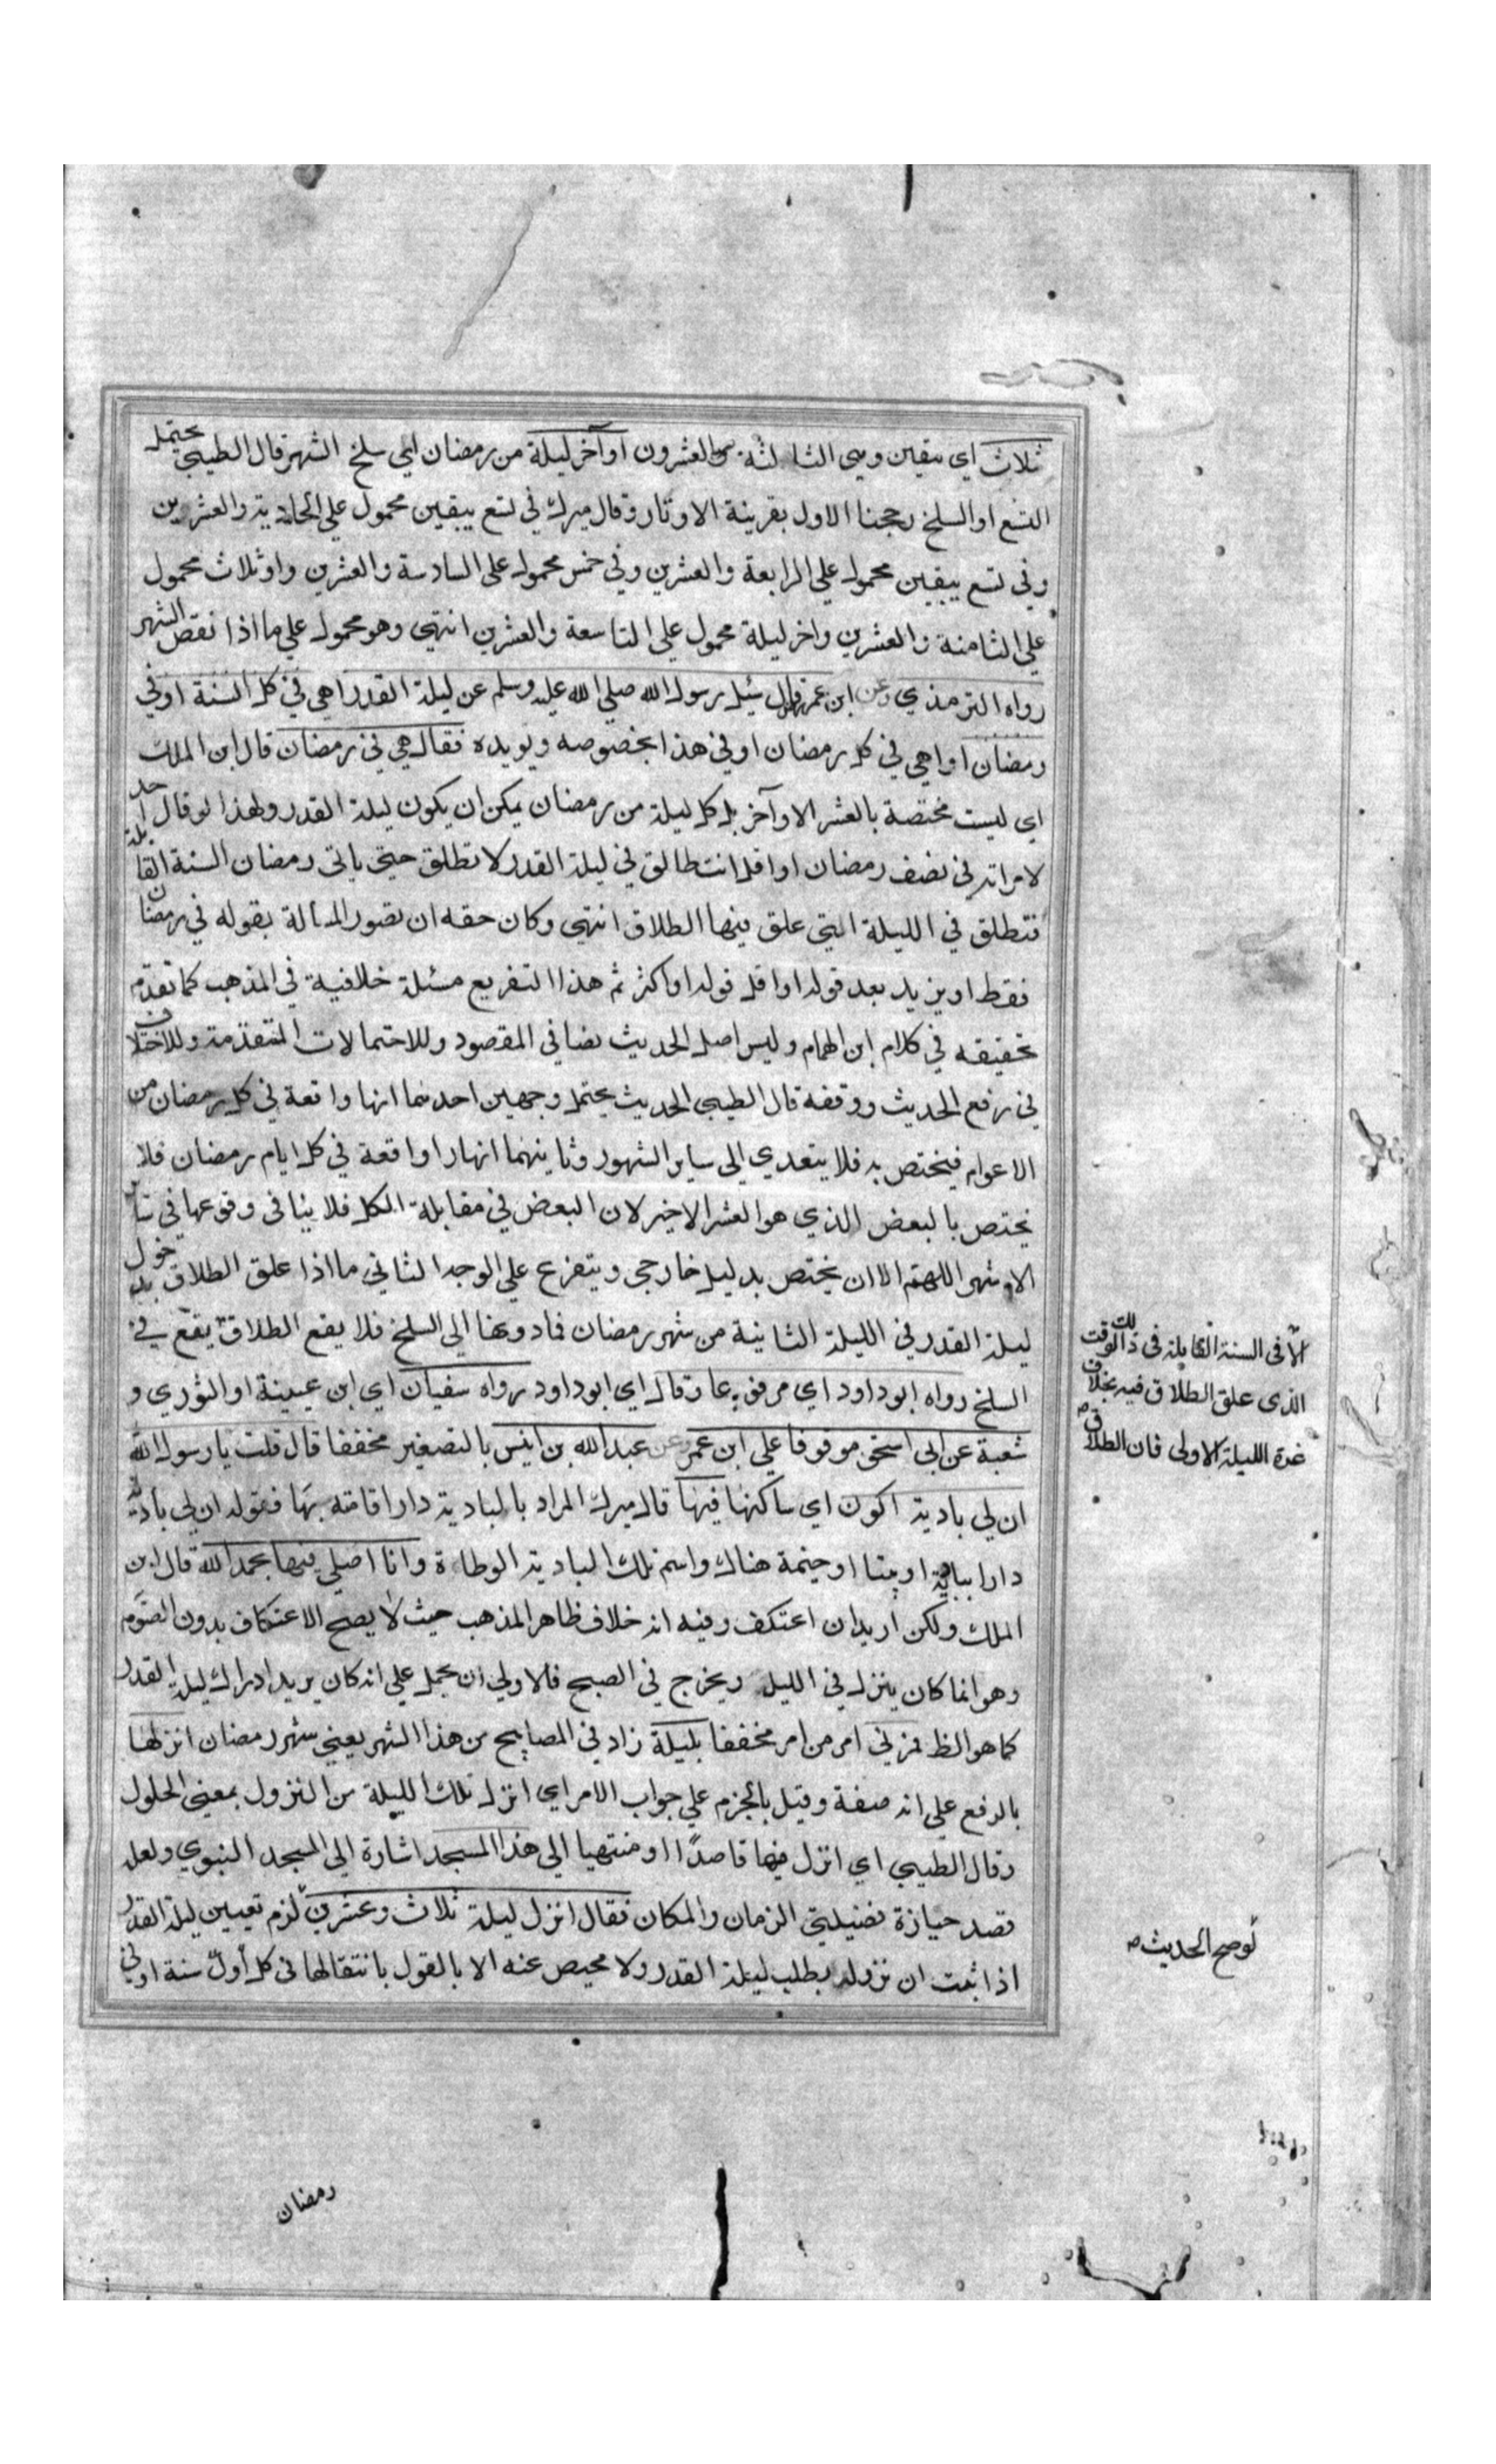 ثلاث اي يبقين وهي الثالثة والعشرون او آخر ليلة من رمضان اي سلخ الشهر قال الطيبي يحتمل
التسع او السلخ رجحنا الاول بقرينة الاوتار وقال ميرك في تسع يبقين محمول علي الحادية والعشرين
وفي تسع يبقين محمول علي الرابعة والعشرين وفي خمس محمول علي السادسة والعشرين واو ثلاث محمول
علي الثامنة والعشرين واخر ليلة محمول علي التاسعة والعشرين انتهي وهو محمول علي ما اذا نقص الشهر
رواه الترمذي وعن ابن عمر قال سئل رسول الله صلي الله عليه وسلم عن ليلة القدر اهي في كل السنة اوفي
رمضان اواهي في كل رمضان اوفي هذا بخصوصه ويويده فقال هي في رمضان قال ابن الملك
اي ليست مختصة بالعشر الاوآخر بل كل ليلة من رمضان يمكن ان يكون ليلة القدر ولهذا لو قال احد
لامراته في نصف رمضان او اقل انت طالق في ليلة القدر لا تطلق حتي ياتي رمضان السنة القابلة
فتطلق في الليلة التي علق فيها الطلاق انتهي وكان حقه ان يصور المسألة بقوله في رمضان
فقط او يزيد بعد قوله او اقل قوله او اكثر ثم هذا التفريع مسئلة خلافية في المذهب كما تقدم
تحقيقه في كلام ابن الهمام وليس اصل الحديث نصا في المقصود وللاحتمالات المتقدمة وللاختلاف
في رفع الحديث ووقفه قال الطيبي الحديث يحتمل وجهين احدهما انها واقعة في كل رمضان من
الاعوام فيختص به فلا يتعدي الى ساير الشهور وثانيهما انها واقعة في كل ايام رمضان فلا
يختص بالبعض الذي هو العشر الاخير لان البعض في مقابلة الكل فلا ينافى وقوعها في سائر
الاشهر اللهم الا ان يختص بدليل خارجي ويتفرع علي الوجه الثاني ما اذا علق الطلاق بدخول
ليلة القدر في الليلة الثانية من شهر رمضان فما دونها الي السلخ فلا يقع الطلاق يقع في
السلخ رواه ابو داود اي مرفوعا وقال اي ابو داود رواه سفيان اي ابن عيينة او الثوري و
شعبة عن ابي اسحق موقوفا علي ابن عمر وعن عبد الله بن انيس بالتصغير مخففا قال قلت يا رسول الله
ان لي بادية اكون اي ساكنها فيها قال ميرك المراد بالبادية دار اقامته بها فقوله ان لي بادية
دارا ببادية او بيتا او خيمة هناك واسم تلك البادية الوطاءة وانا اصلي فيها بحمد الله قال ابن
الملك ولكن اريد ان اعتكف وفيه انه خلاف ظاهر المذهب حيث لا يصح الاعتكاف بدون الصوم
وهو انما كان ينزل في الليل ويخرج في الصبح فالاولي ان يحمل علي انه كان يريد ادراك ليلة القدر
كما هو الظ فمرني امر من امر مخففا بليلة زاد في المصابيح من هذا الشهر يعني شهر رمضان انزلها
بالرفع علي انه صفة وقيل بالجزم علي جواب الامر اي انزل تلك الليلة من النزول بمعني الحلول
وقال الطيبي اي انزل فيها قاصدًا او منتهيا الي هذا المسجد اشارة الي المسجد النبوي ولعله
قصد حيازة فضيلتي الزمان والمكان فقال انزل ليلة ثلاث وعشرين لزم تعيين ليلة القدر
اذا ثبت ان نزوله بطلب ليلة القدر ولا محيص عنه الا بالقول بانتقالها فى كل أول سنة اوفي
الّا فى السنة القابلة فى ذالك الوقت
الذى علق الطلاق فيه بخلاف
غدة الليلة الاولى فان الطلاق
لو صح الحديث ص
رمضان